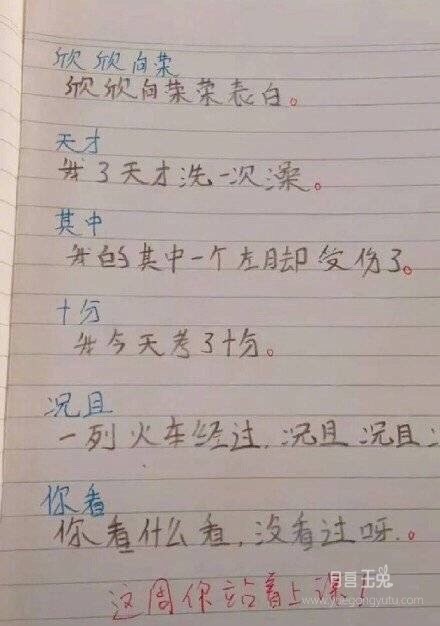 欣欣向荣
欣欣向荣荣表白。
天才
我3天才洗一次澡。
其中
我的其中一个左脚受伤了。
十分
我今天考了十分。
况且
一列火车经过,况且况且
你看
你看什么看,没看过呀.。
这周你站着上课!
www.yuegongyutu.com